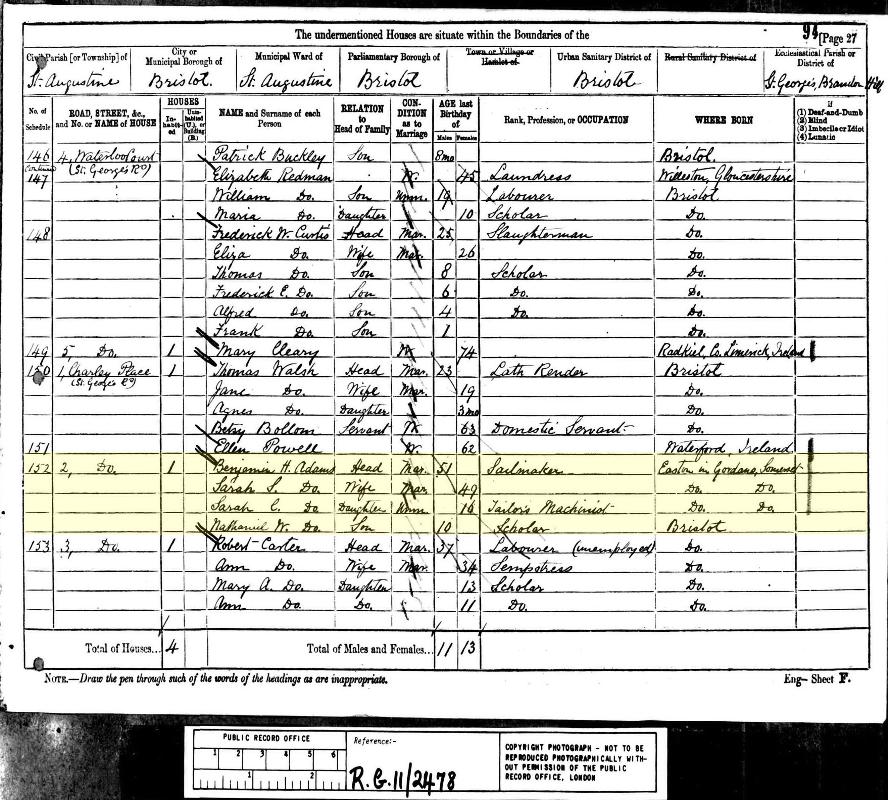 The undermentioned Houses are situate within the Boundaries of the
[Page 27
Civil Parish [or Township] of
City or Municipal Borough of
Municipal Ward of
Parliamentary Borough of
Town or Village or Hamlet of
Urban Sanitary District of
Rural Sanitary District of
Ecclesiastical Parish or District of
St. Augustine Bristol. St. Augustine Bristol Bristol St. George's, Brandon Hill
No. of Schedule
ROAD, STREET, &c., and No. or NAME of HOUSE
HOUSES
Inhabited
Uninhabited (U.), or Building (B.)
NAME and Surname of each Person
RELATION to Head of Family
CONDITION as to Marriage
AGE last Birthday of
Males Females
Rank, Profession, or OCCUPATION
WHERE BORN
If
(1) Deaf-and-Dumb
(2) Blind
(3) Imbecile or Idiot
(4) Lunatic
146 4, Waterloo Court Patrick Buckley Son 8mo Bristol.
continued (St. George's Rd)
147 Elizabeth Redman W. 45 Laundress Gloucestershire
William Do. Son Unm. 19 Labourer Bristol
Maria Do. Daughter 10 Scholar Do.
148 Frederick W. Curtis Head Mar. 25 Slaughterman Do.
Eliza Do. Wife Mar. 26 Do.
Thomas Do. Son 8 Scholar Do.
Frederick E. Do. Son 6 Do. Do.
Alfred Do. Son 4 Do. Do.
Frank Do. Son 1 Do.
149 5, Do. 1 Mary Cleary W 74 Co. Limerick, Ireland
150 1, Charley Place 1 Thomas Walsh Head Mar. 23 Lath Render Bristol
(St. George's Rd)
Jane Do. Wife Mar. 19 Do.
Agnes Do. Daughter 3mo Do.
Betsy Bollom Servant W. 63 Domestic Servant Do.
151 Ellen Powell W. 62 Waterford, Ireland
152 2, Do. 1 Benjamin H. Adams Head Mar. 51 Sailmaker Easton in Gordano, Somerset
Sarah S. Do. Wife Mar. 49 Do. Do.
Sarah E. Do. Daughter Unm 16 Tailor's Machinist Do. Do.
Nathaniel W. Do. Son 10 Scholar Bristol
153 3, Do. 1 Robert Carter Head Mar. 37 Labourer (unemployed) Do.
Ann Do. Wife Mar. 34 Sempstress Do.
Mary A. Do. Daughter 13 Scholar Do.
Ann Do. Do. 11 Do. Do.
Total of Houses... 4 Total of Males and Females.. 11 13
NOTE.—Draw the pen through such of the words of the headings as are inappropriate.
Eng— Sheet F.
PUBLIC RECORD OFFICE
1 2 3 4 5 6
1 2
Reference:-
R.G. 11/2478
COPYRIGHT PHOTOGRAPH - NOT TO BE REPRODUCED PHOTOGRAPHICALLY WITHOUT PERMISSION OF THE PUBLIC RECORD OFFICE, LONDON